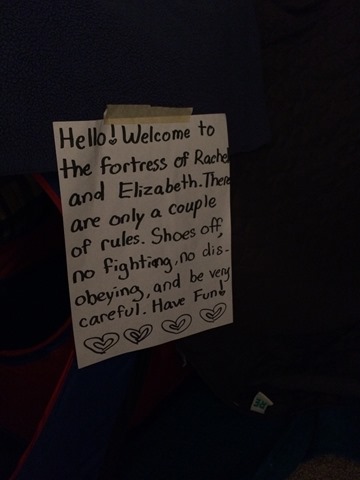 Hello! Welcome to
the fortress of Rachel
and Elizabeth. There
are only a couple
of rules. Shoes off,
no fighting, no dis-
obeying, and be very
careful. Have Fun!
RE